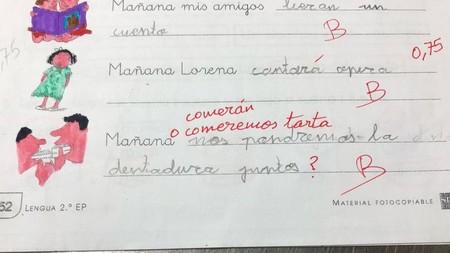 Mañana mis amigos leeran un
cuento
B
0,75
0,75
Mañana Lorena cantará opera
B
comerán
o comeremos tarta
Mañana nos pondremos la
dentadura juntos ?
B
52 LENGUA 2.º EP
MATERIAL FOTOCOPIABLE